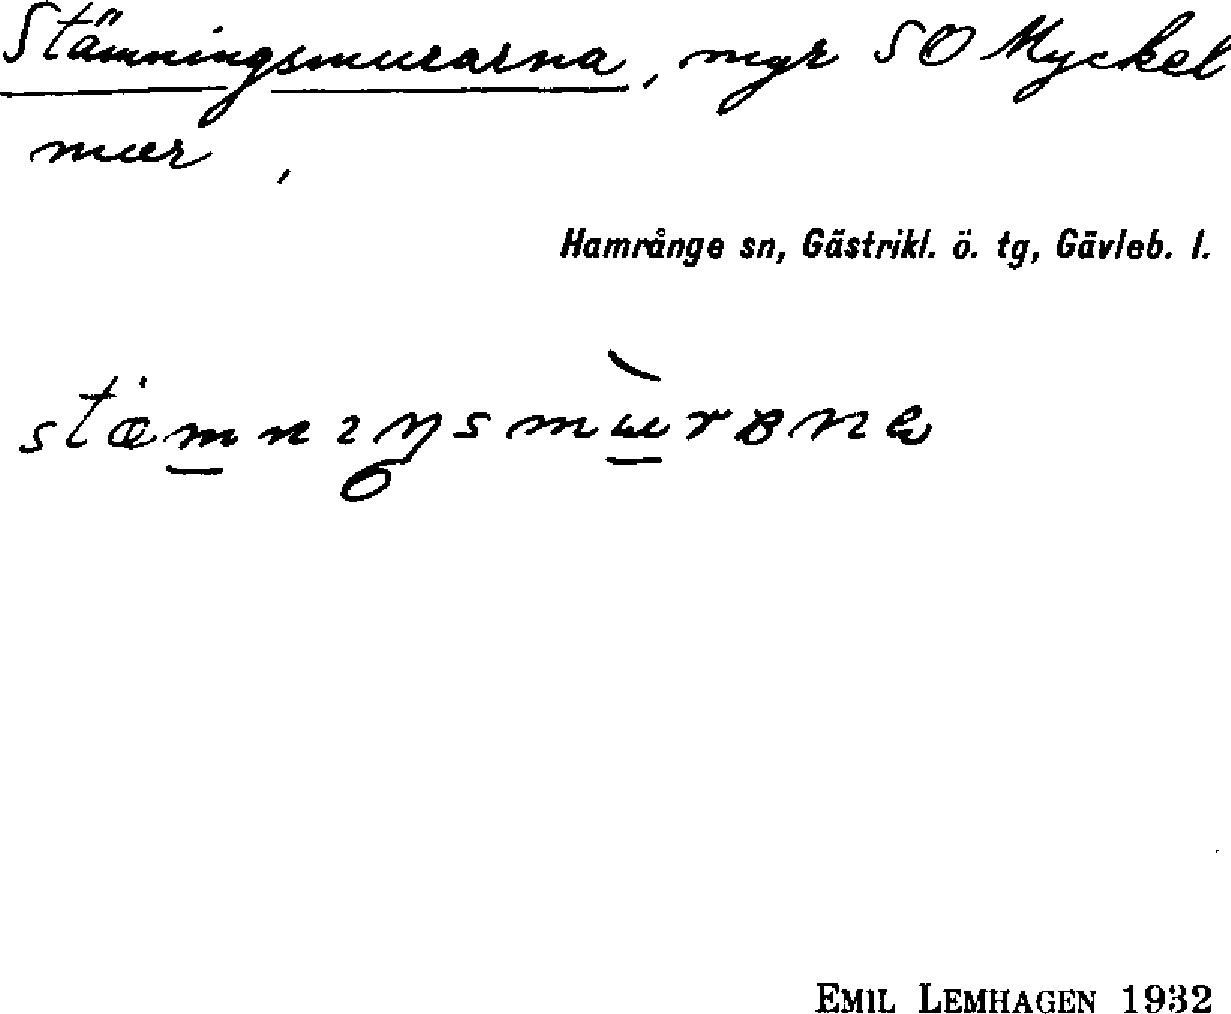 Stämningsmurarna, myr SO Myckel
mur,
Hamrånge sn, Gästrikl. ö. tg, Gävleb. l.
EMIL LEMHAGEN 1932